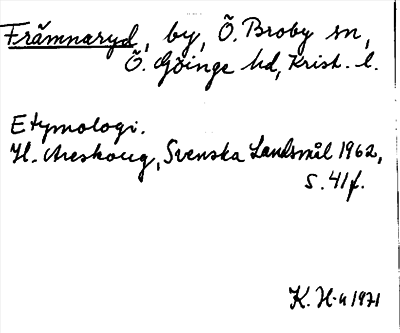 Främnaryd, by, Ö. Broby sn,
Ö. Göinge hd, Krist. l.
Etymologi.
H. Areskoug, Svenska Landsmål 1962,
s. 41f.
K. H-n 1971